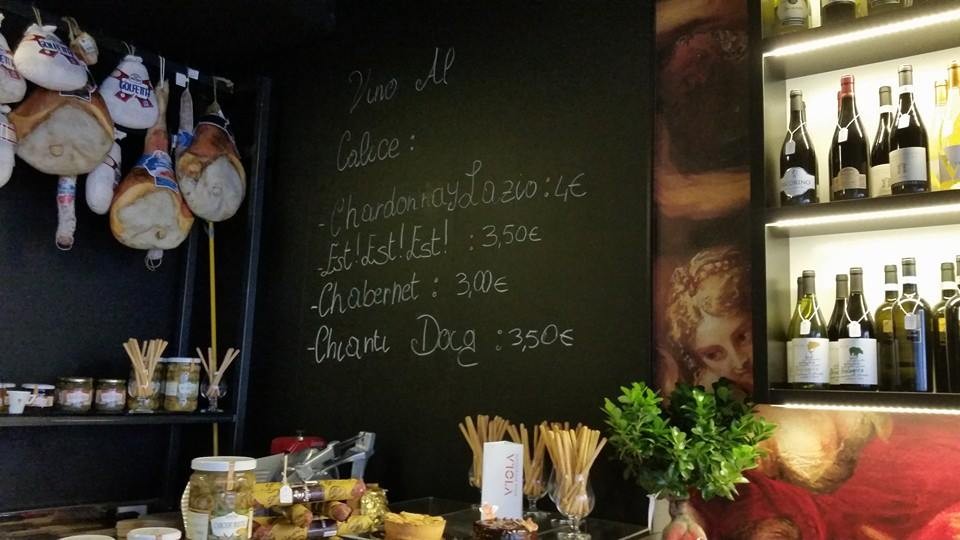 GOLFETTA
GOLFETTA
Vino Al
Calice :
-Chardonnay Lazio : 4€
-Est! Est! Est! : 3,50€
-Chabernet : 3,00€
-Chianti Docg : 3,50€
VIOLA